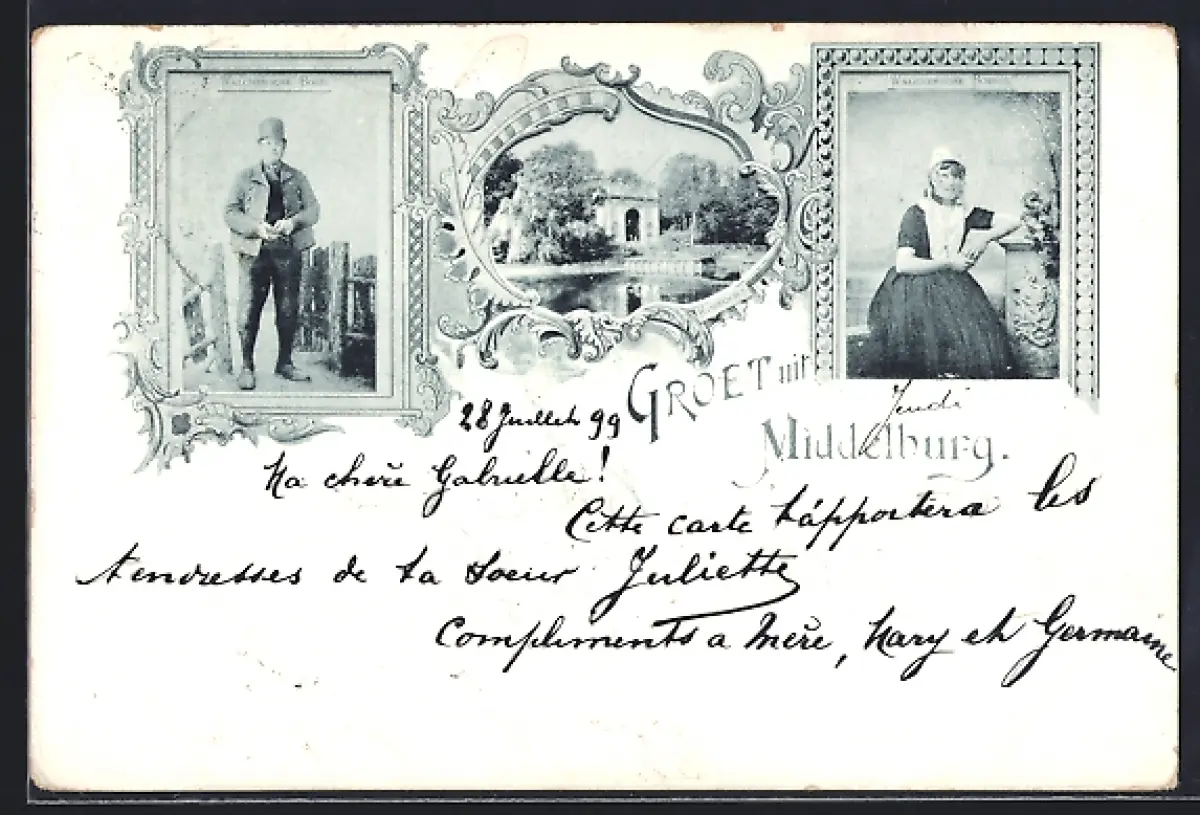 Walchersche Boer.
Walchersche Boerin.
GROET uit
Middelburg.
Jeudi
28 Juillet 99
Ma chère Gabrielle!
Cette carte t'apportera les
tendresses de ta soeur Juliette
Compliments a Mère, Mary et Germaine